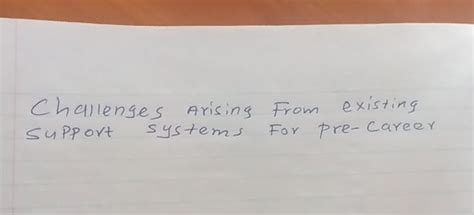 Challenges Arising From existing
Support systems For pre-career